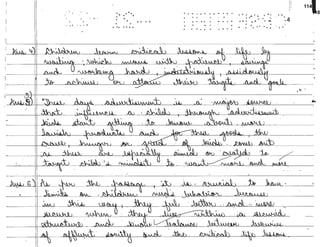 114
4
Ans. 4) Children learn critical lessons of life by
waiting, which means with patience, savings
and working hard, industriously, assiduously
to achieve or attain their targets and goals.
Ans. 5) These days advertisement is a major source
that influences a child, through advertisement
kids start getting to know about more
lavish products and for these goods, the
crave hunger or of kids comes out
as these are especially aimed or created to
target child's mindset to want more and more
Ans. 6) As per the passage, it is crucial to have
limits on children because
in this way, they feel better and more
secure when they live within a secured
structure and know balance between luxuries
of affluent society and the critical life lessons.